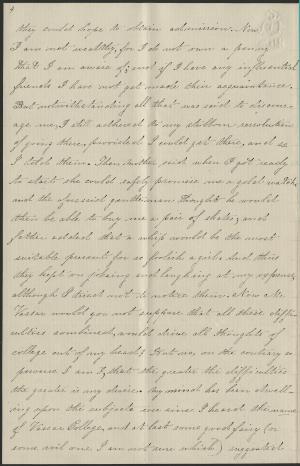 4
they could hope to obtain admission. Now
I am not wealthy, for I do not own a penny
that I am aware of; and if I have any influential
friends I have not yet made their acquaintance.
But notwithstanding all that was said to discour-
age me, I still adhered to my stubborn resolution
of going there, provided I could get there, and so
I told them. Then, mother said when I got ready
to start she could safely promise me a gold watch,
and the aforesaid gentleman thought he would
then be able to buy me a pair of skates, and
father added that a whip would be the most
suitable present for so foolish a girl. And thus
they kept on joking and laughing at my expense,
although I tried not to notice them. Now Mr.
Vassar would you not suppose that all these diffi-
culties combined, would drive all thoughts of
college out of my head? But no, on the contrary so
perverse I am, that the greater the difficulties
the greater is my desire. My mind has been dwell-
ing upon the subject ever since I heard the name
of Vassar College, and at last some good fairy (or
some evil one, I am not sure which) suggested